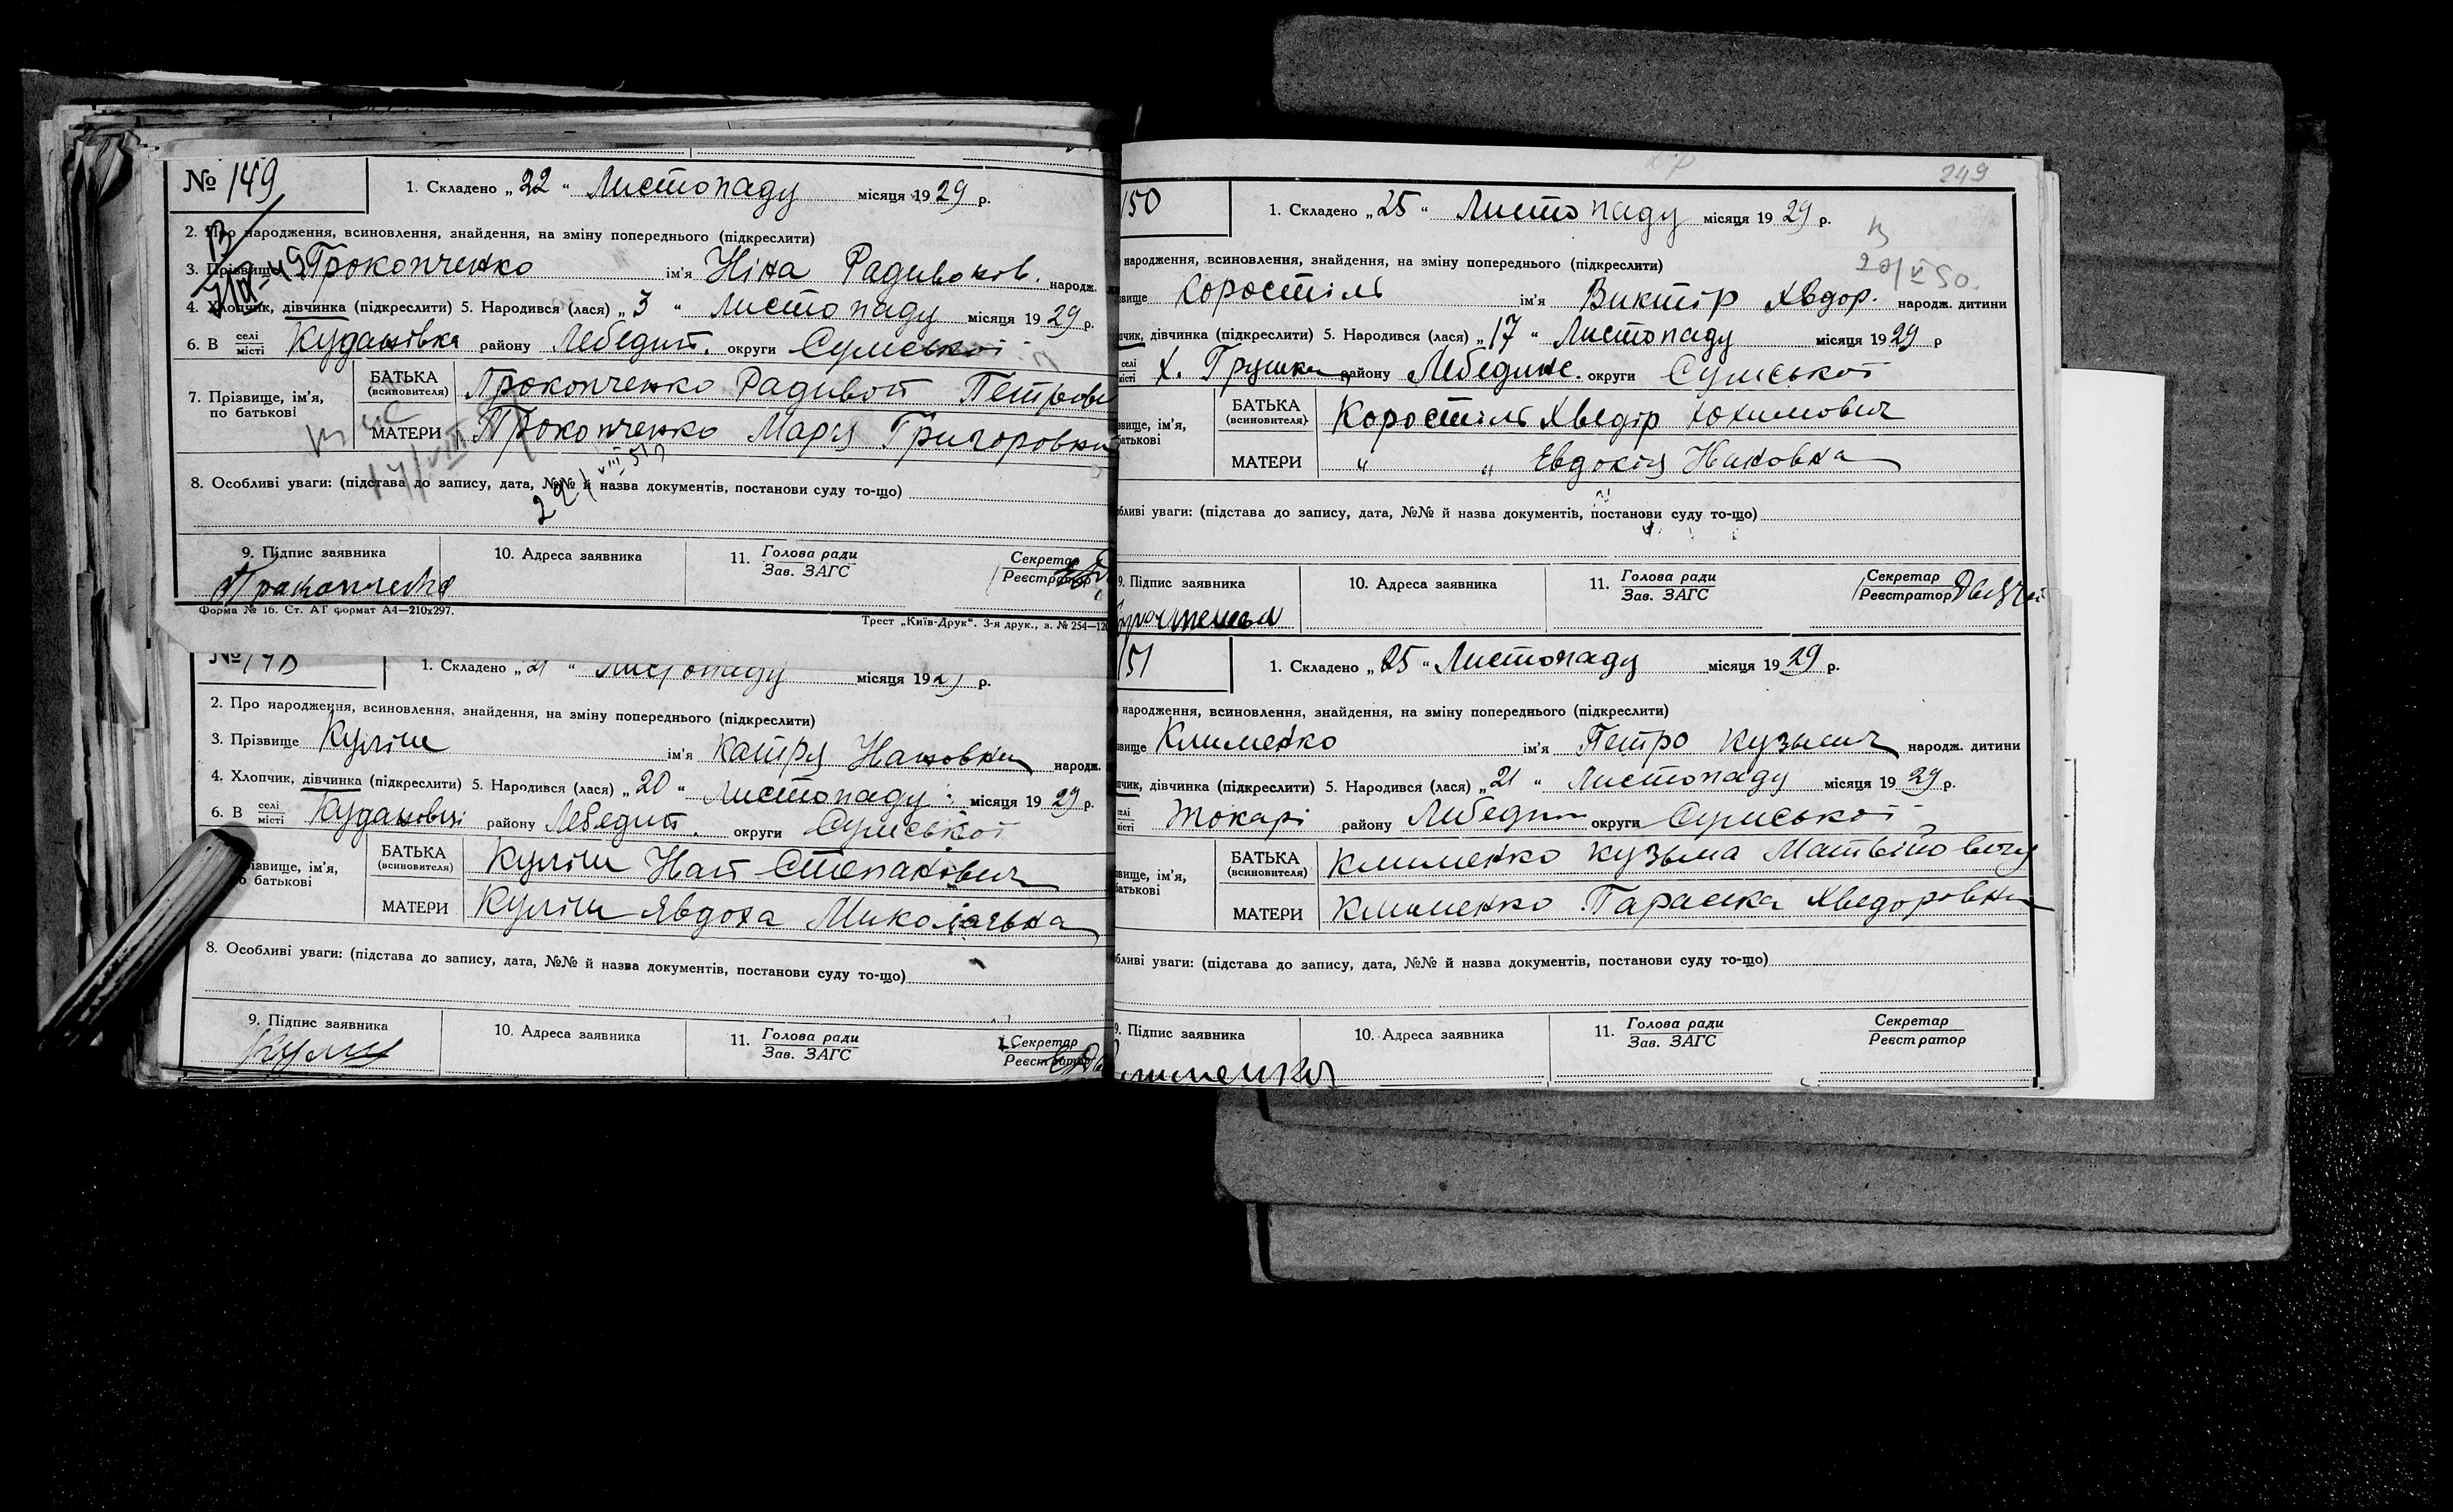 № 149
1. Складено „22“ Листопаду місяця 1929 р.
2. Про народження, всиновлення, знайдення, на зміну попереднього (підкреслити)
3. Прізвище Прокопченко ім'я Ніна Радивонов. народж.
4. Хлопчик, дівчинка (підкреслити) 5. Народився (лася) „3“ Листопаду місяця 1929 р.
6. В селі місті Кудановка району Лебедин. округи Сумської
7. Прізвище, ім'я, по батькові
БАТЬКА (всиновителя) Прокопченко Радивон Петрови
МАТЕРИ Прокопченко Марія Григоровна
8. Особливі уваги: (підстава до запису, дата, №№ й назва документів, постанови суду то-що)
9. Підпис заявника 10. Адреса заявника 11. Голова ради Зав. ЗАГС Секретар Реєстратор
Прокопченко
Форма № 16. Ст. АТ формат А4—210x297.
Трест „Київ-Друк“. 3-я друк., з. № 254—120
№ 148
1. Складено „21“ Листопаду місяця 1929 р.
2. Про народження, всиновлення, знайдення, на зміну попереднього (підкреслити)
3. Прізвище Куліш ім'я Катря Нановна народж.
4. Хлопчик, дівчинка (підкреслити) 5. Народився (лася) „20“ Листопаду місяця 1929 р.
6. В селі місті Кудановці району Лебедин. округи Сумської
різвище, ім'я, о батькові
БАТЬКА (всиновителя) Куліш Нат Степанович
МАТЕРИ Куліш Явдоха Миколаевна
8. Особливі уваги: (підстава до запису, дата, №№ й назва документів, постанови суду то-що)
9. Підпис заявника 10. Адреса заявника 11. Голова ради Зав. ЗАГС Секретар Реєстратор
Кулиш
249
150
1. Складено „25“ Листопаду місяця 1929 р.
народження, всиновлення, знайдення, на зміну попереднього (підкреслити)
вище Коростіль ім'я Виктір Хведор. народж. дитини
чик, дівчинка (підкреслити) 5. Народився (лася) „17“ Листопаду місяця 1929 р
селі місті х. Грушки району Лебединс. округи Сумської
вище, ім'я, батькові
БАТЬКА (всиновителя) Коростіль Хведір Юхимович
МАТЕРИ „ „ Евдокія Наковна
бливі уваги: (підстава до запису, дата, №№ й назва документів, постанови суду то-що)
9. Підпис заявника 10. Адреса заявника 11. Голова ради Зав. ЗАГС Секретар Реєстратор
151
1. Складено „25“ Листопаду місяця 1929 р.
народження, всиновлення, знайдення, на зміну попереднього (підкреслити)
вище Клименко ім'я Петро Кузьмич народж. дитини
чик, дівчинка (підкреслити) 5. Народився (лася) „21“ Листопаду місяця 1929 р.
селі місті Токарі району Лебедин округи Сумської
вище, ім'я, батькові
БАТЬКА (всиновителя) Клименко Кузьма Матвійович
МАТЕРИ Клименко Параска Хведоровна
бливі уваги: (підстава до запису, дата, №№ й назва документів, постанови суду то-що)
9. Підпис заявника 10. Адреса заявника 11. Голова ради Зав. ЗАГС Секретар Реєстратор